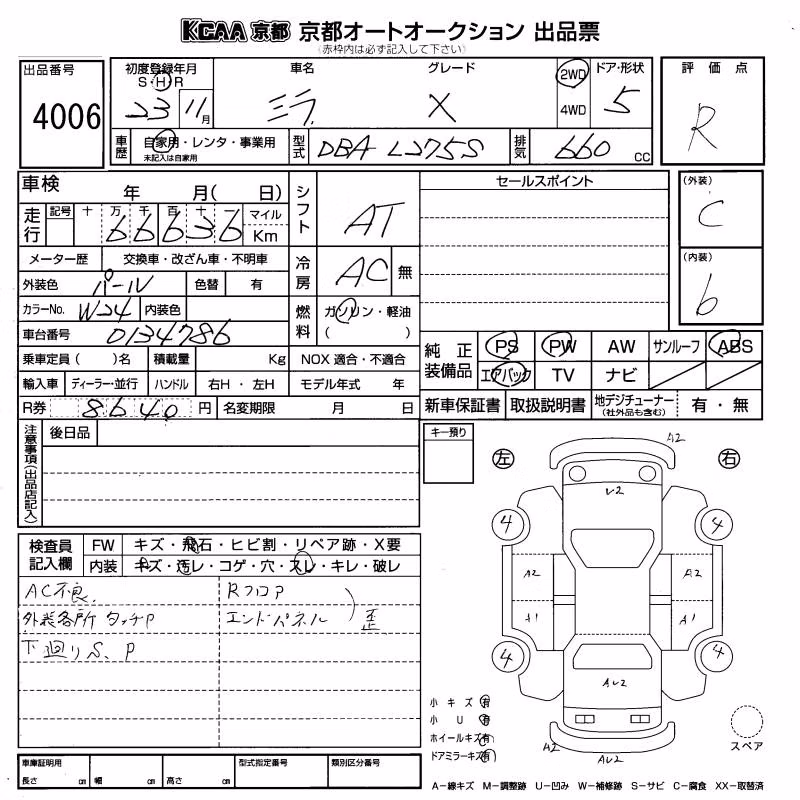 KCAA 京都 京都オートオークション 出品票
(赤枠内は必ず記入して下さい)
出品番号
4006
初度登録年月
S・H・R
23 11月
車名
ミラ
グレード
X
2WD
4WD
ドア・形状
5
評価点
R
車歴
自家用・レンタ・事業用
未記入は自家用
型式
DBA L275S
排気
660 CC
車検 年 月( 日)
走行
記号 十 万 千 百 十 一
66636
マイル
Km
シフト
AT
セールスポイント
(外装)
C
(内装)
b
メーター歴 交換車・改ざん車・不明車
冷房
AC 無
外装色 パール 色替 有
カラーNo. W24 内装色
燃料
ガソリン・軽油
( )
車台番号 0134786
乗車定員( )名 積載量 Kg NOX 適合・不適合
輸入車 ディーラー・並行 ハンドル 右H・左H モデル年式 年
R券 8640 円 名変期限 月 日
純正装備品
PS PW AW サンルーフ ABS
エアバック TV ナビ
新車保証書 取扱説明書 地デジチューナー(社外品も含む) 有・無
注意事項(出品店記入)
後日品
キー預り
左 右
A2
V2
4 4
A2 A2
A1 A1
4 4
AV2
A2 AV2
検査員記入欄
FW キズ・飛石・ヒビ割・リペア跡・X要
内装 キズ・汚レ・コゲ・穴・スレ・キレ・破レ
AC不良
外装各所タッチP
下廻りS、P
Rフロア
エンドパネル
歪
小キズ 有
小U 有
ホイールキズ 有
ドアミラーキズ 有
スペア
車庫証明用
長さ cm 幅 cm 高さ cm
型式指定番号 類別区分番号
A−線キズ M−調整跡 U−凹み W−補修跡 S−サビ C−腐食 XX−取替済